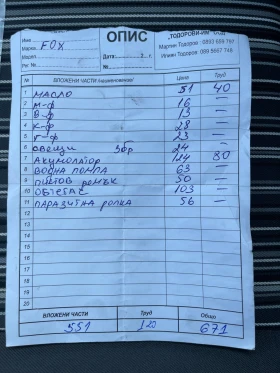 ОПИС
"ТОДОРОВИ-ИМ" ООД
Име
Марка FOX
Мартин Тодоров - 0892 609 797
Дата: 2 г.
Рег. №
№ ВЛОЖЕНИ ЧАСТИ /наименование/ Цена Труд
1 МАСЛО 51 40
2 М-Ф 16 —
3 В-Ф 13 —
4 К-Ф 28 —
5 Г-Ф 23 —
6 СВЕЩИ 3бр 24 —
7 АКУМОЛАТОР 124 80
8 ВОДНА ПОМПА 63 —
9 ПИСТОВ РЕМЪК 50 —
10 ОБТЕГАЧ 103 —
11 ПАРАЗИТНА РОЛКА 56 —
12
13
14
15
16
17
18
19
20
ВЛОЖЕНИ ЧАСТИ Труд Общо
551 120 671